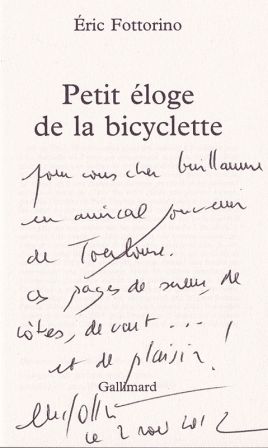 Éric Fottorino
Petit éloge
de la bicyclette
pour vous cher Guillaume
en amical souvenir
de Toulouse.
ces pages de sueur, de
côtes, de vent ...
et de plaisir !
Gallimard
le 2 nov 2012